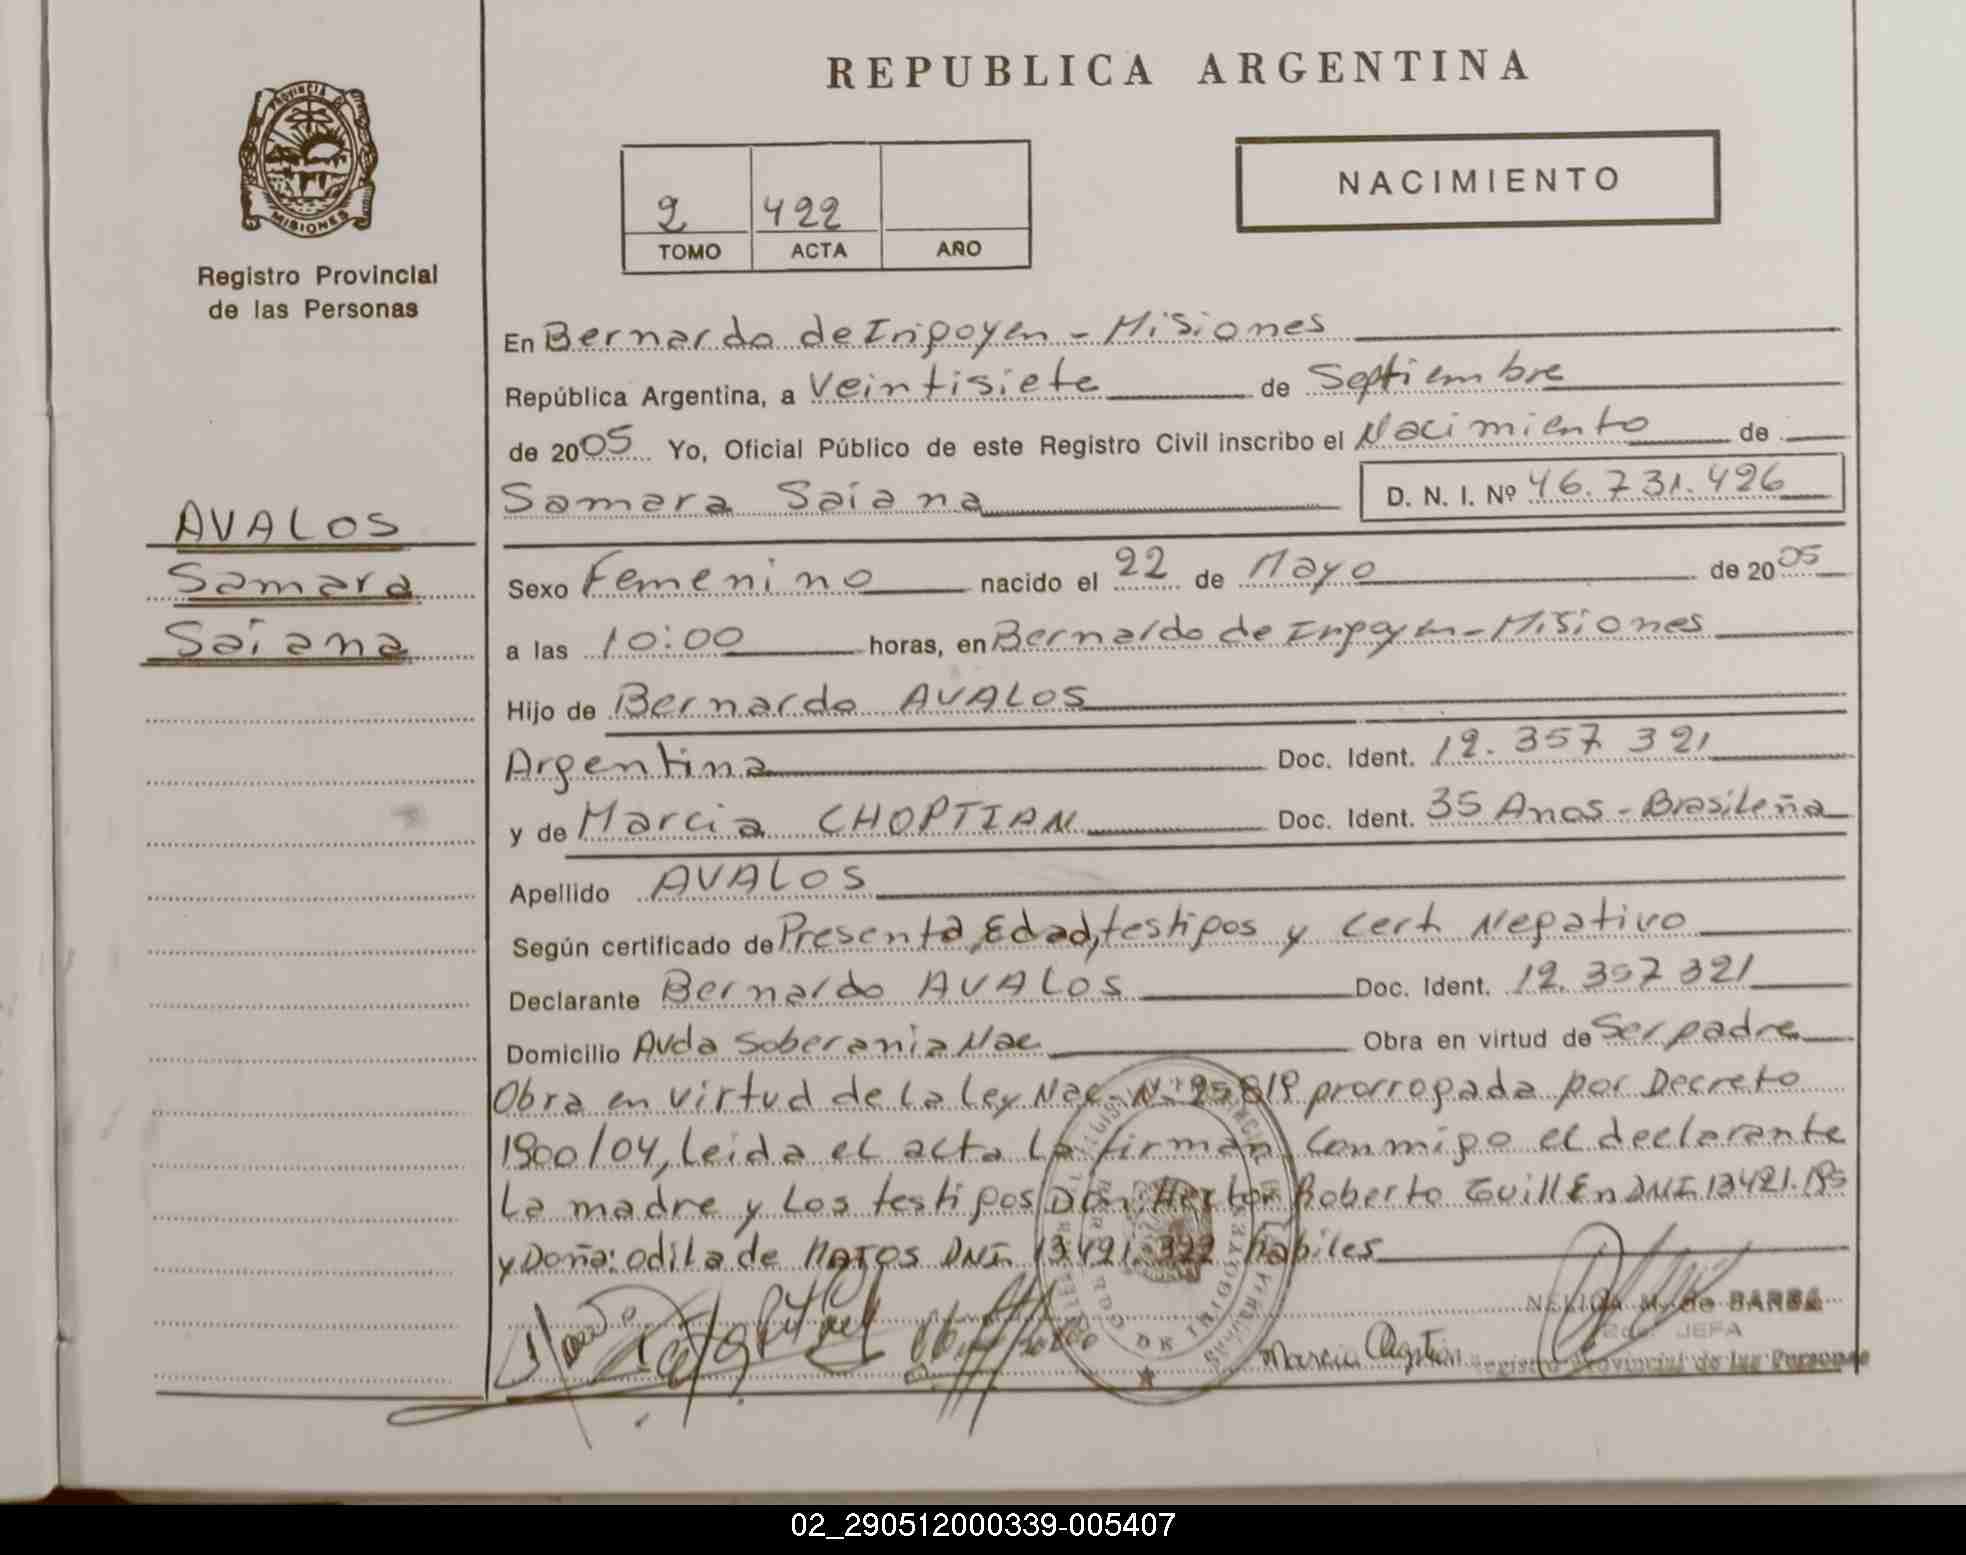 PROVINCIA DE
MISIONES
Registro Provincial
de las Personas
AVALOS
Samara
Saiana
REPUBLICA ARGENTINA
2 422
TOMO ACTA AÑO
NACIMIENTO
En Bernardo de Irigoyen - Misiones
República Argentina, a Veintisiete de Septiembre
de 2005 Yo, Oficial Público de este Registro Civil inscribo el Nacimiento de
Samara Saiana D. N. I. Nº 46.731.426
Sexo Femenino nacido el 22 de Mayo de 2005
a las 10:00 horas, en Bernaldo de Irigoyen - Misiones
Hijo de Bernardo AVALOS
Argentina Doc. Ident. 12.357 321
y de Marcia CHOPTIAN Doc. Ident. 35 Anos - Brasileña
Apellido AVALOS
Según certificado de Presenta, Edad, testigos y Cert Negativo
Declarante Bernaldo AVALOS Doc. Ident. 12.357 321
Domicilio Avda Soberania Nac Obra en virtud de Ser padre
Obra en virtud de la Ley Nac. Nº 25819 prorrogada por Decreto
1900/04, leida el acta la firman Conmigo el declarante
la madre y los testigos Don Hector Roberto Guillen DNI 13421.195
y Doña: Odila de Matos DNI 13.421.322 habiles
NELIDA M. de BARBA
JEFA
Marcia
Registro Provincial de las Personas
02_290512000339-005407